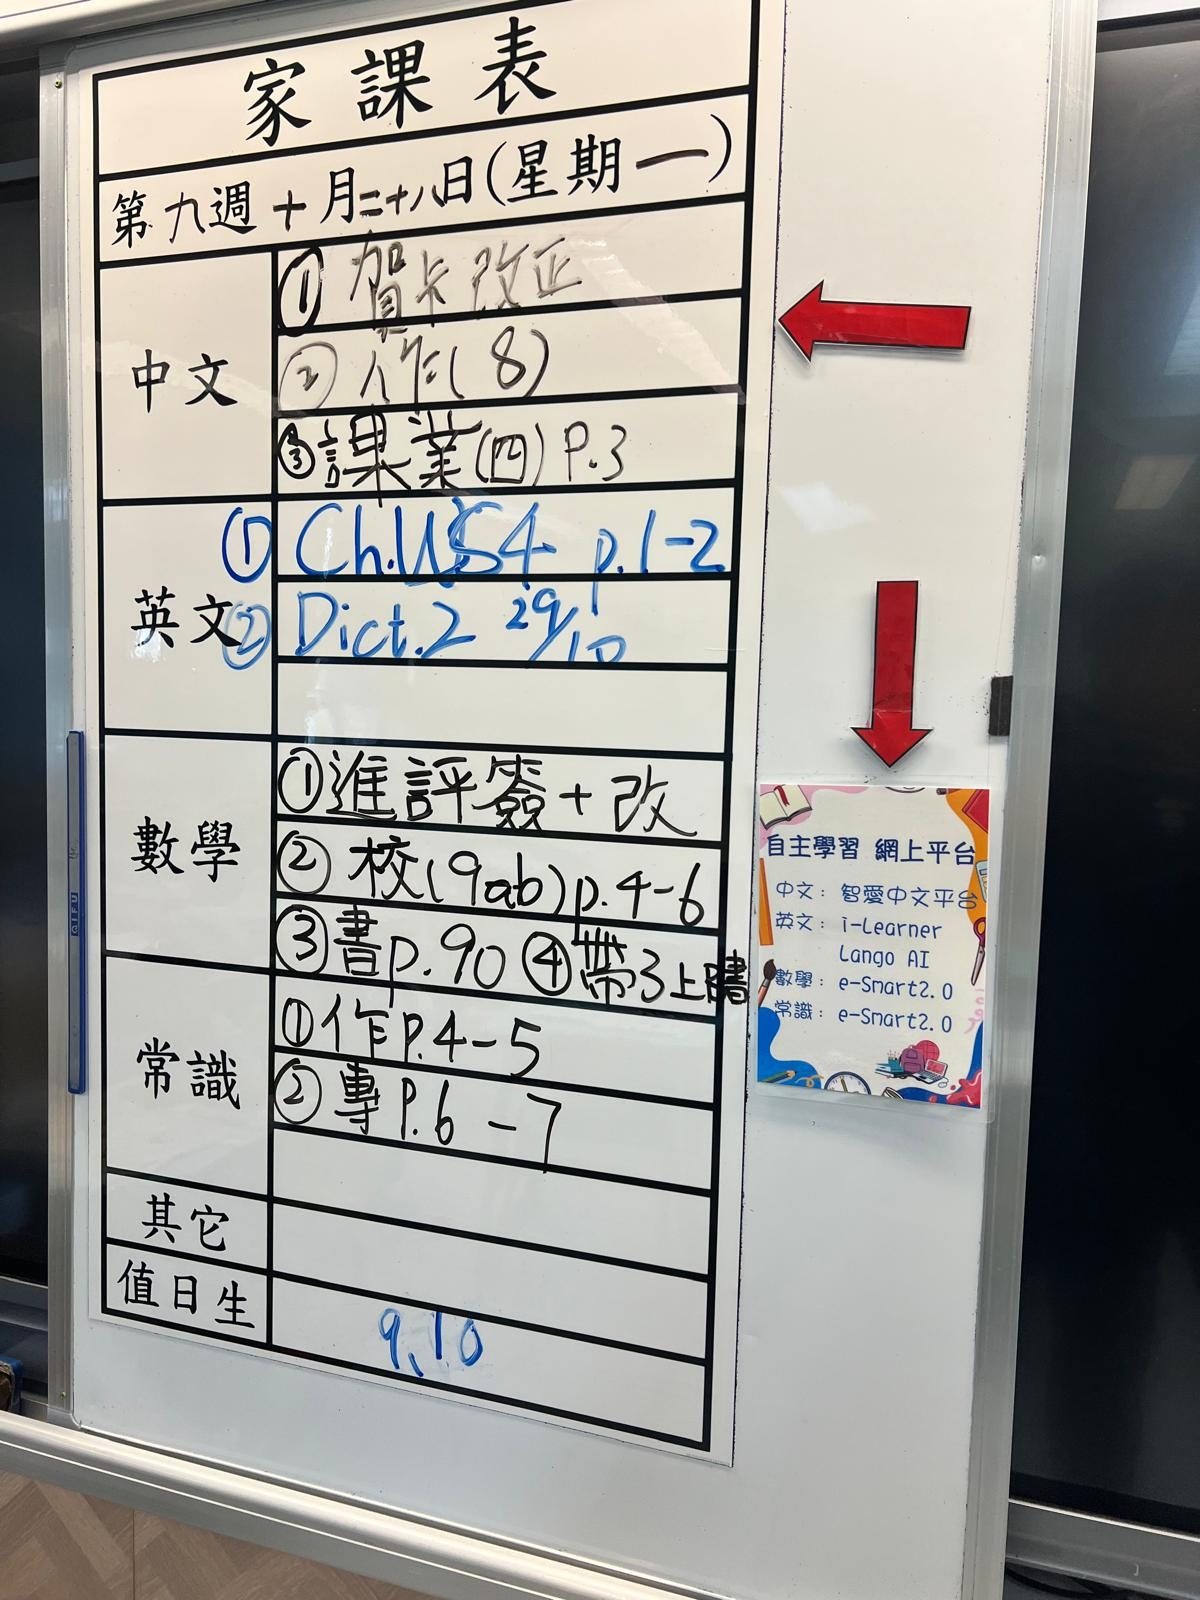 家課表
第九週十月二十八日(星期一)
中文
① 賀卡改正
② 八作(8)
③ 課業(四) P.3
英文
① Ch.U5S4 p.1-2
② Dict.2 29/10
數學
① 進評簽+改
② 校(9ab) p.4-6
③ 書p.90 ④ 帶3上B書
常識
① 作P.4-5
② 專P.6-7
其它
值日生
9、10
自主學習 網上平台
中文：智愛中文平台
英文：i-Learner
Lango AI
數學：e-Smart2.0
常識：e-Smart2.0
GIFU